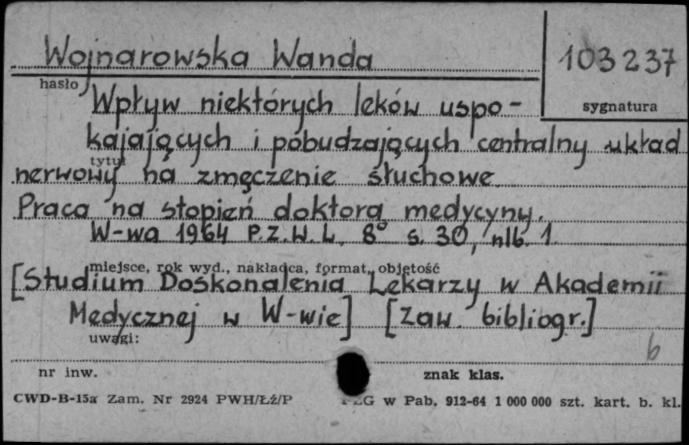 Wojnarowska Wanda
103 237
hasło
sygnatura
Wpływ niektórych leków uspo-
kajających i pobudzających centralny układ
tytuł
nerwowy na zmęczenie słuchowe.
Praca na stopień doktora medycyny.
W-wa 1964 P.Z.W.L. 8° s. 30, nlb. 1.
miejsce, rok wyd., nakładca, format, objętość
[Studium Doskonalenia Lekarzy w Akademii
Medycznej w W-wie] [Zaw. bibliogr.]
uwagi:
b
nr inw.
znak klas.
CWD-B-15a Zam. Nr 2924 PWH/Łź/P
w Pab. 912-64 1 000 000 szt. kart. b. kl.